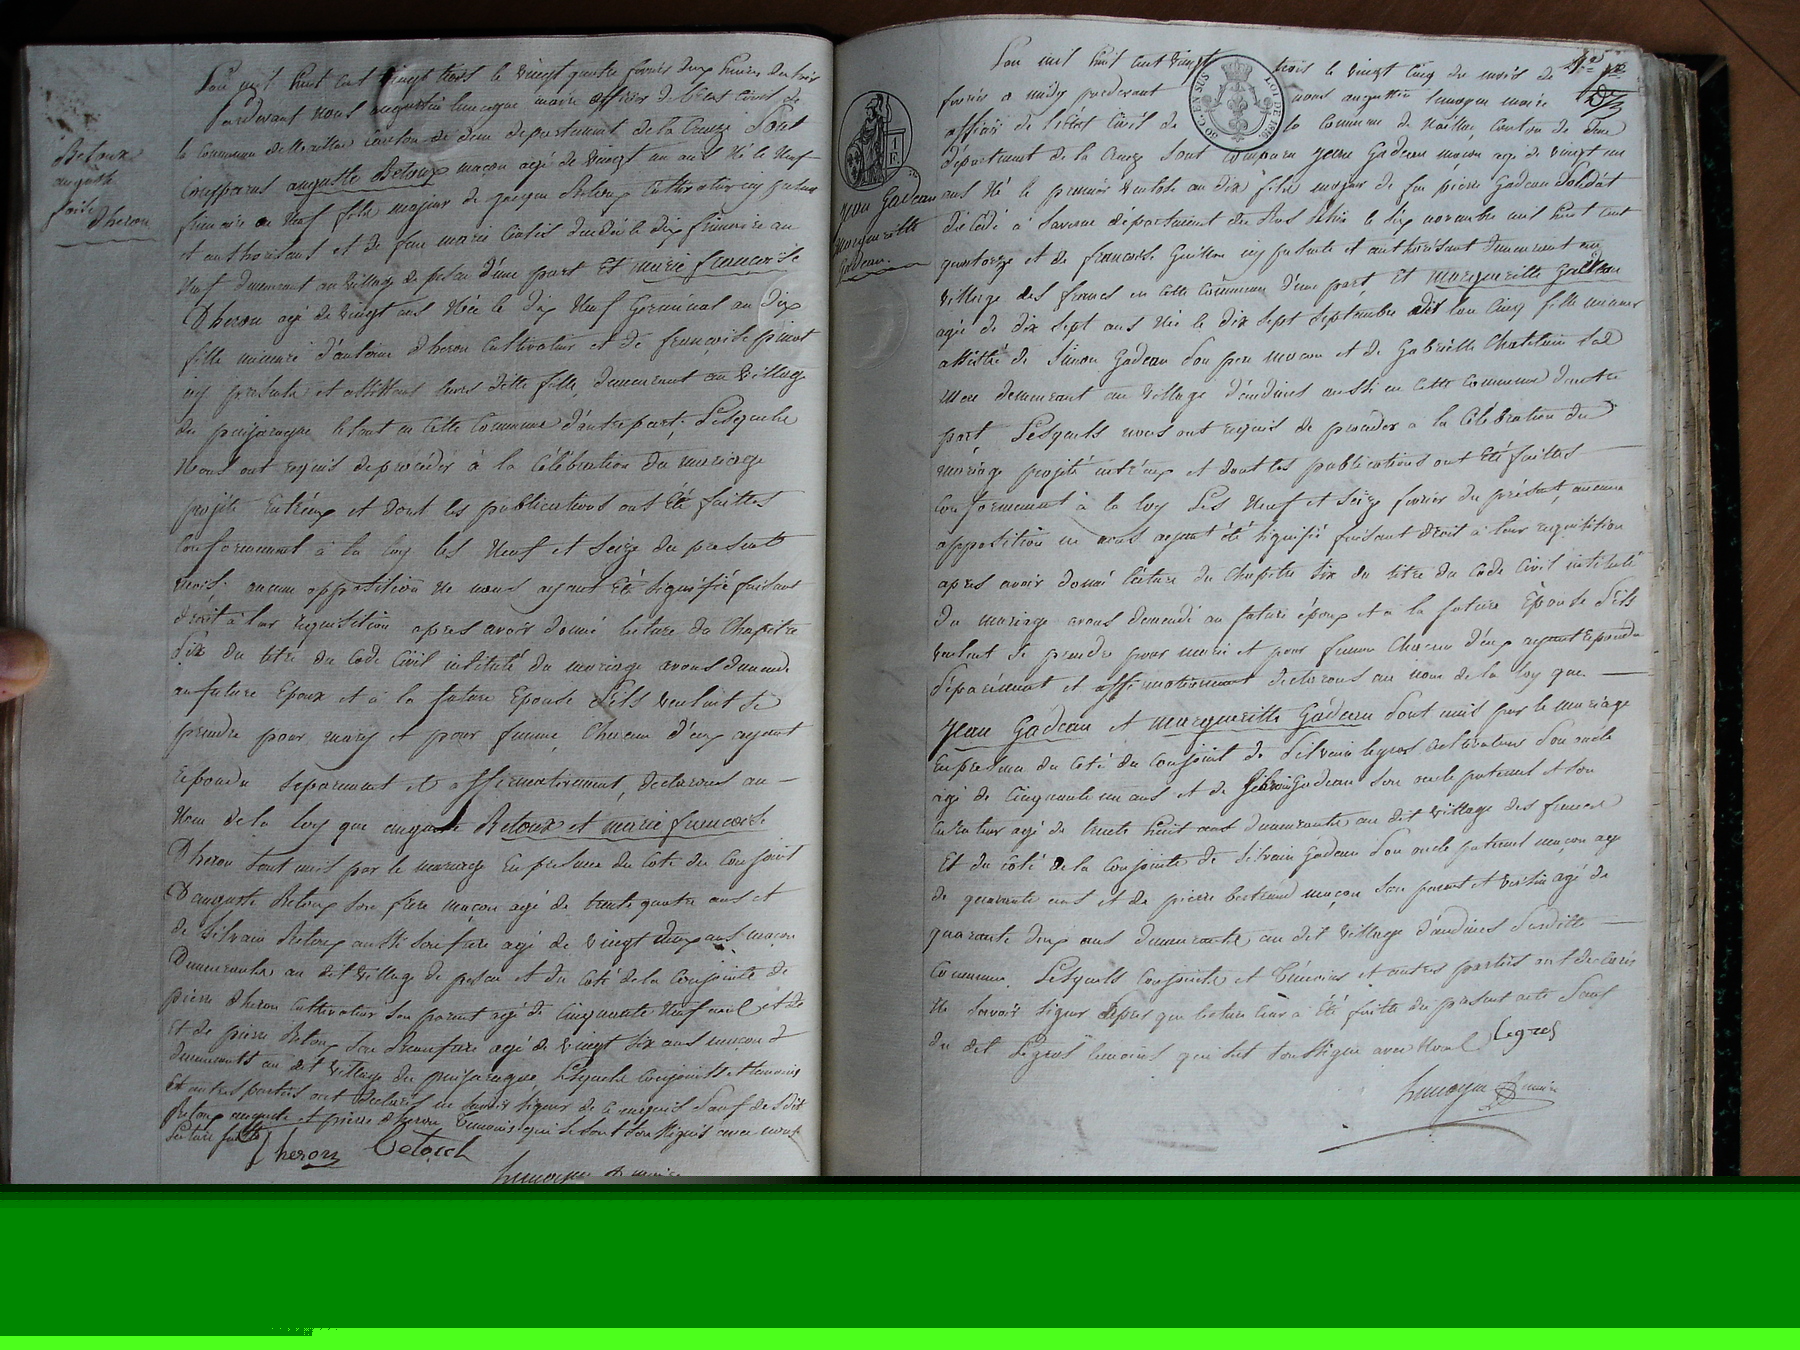 Betoux
auguste
Dheron
L'an mil huit cent vingt trois le vingt quatre fevrier deux heures du soir
Pardevant nous augustin lemoyne maire officier de l'Etat civil de
la commune de Naillac canton de dun departement de la Creuze Sont
Comparus auguste Betoux maçon agé de vingt un ans Né le Neuf
frimaire an Neuf fils majeur de Betoux Cultivateur icy present
et authorisant et de feue marie décédée le dix frimaire an
Neuf demeurant au village de d'une part Et marie francoise
Dheron agé de vingt ans Née le dix Neuf Germinal an dix
fille mineure d'antoine Dheron Cultivateur et de françoise
icy presents et assistant leur ditte fille, demeurant au village
du le tout en Cette Commune d'autre part; Lesquels
Nous ont requis de procéder à la Célébration du mariage
projété Entr'eux et dont les publications ont Eté faittes
Conformement à la loy les Neuf et Seize du present
mois; aucune opposition ne nous ayant Eté Signifié faisant
droit à leur requisition apres avoir donné lecture du Chapitre
Six du titre du Code Civil intitulé du mariage avons demandé
au future Epoux et à la future Epouse S'ils veulent se
prendre pour mary et pour femme, Chacun d'eux ayant
repondu separement et affirmativement, declarons au
Nom de la loy que auguste Betoux et marie francoise
Dheron Sont unis par le mariage En presence du Coté du Conjoint
D'auguste Betoux Son frere maçon agé de trente quatre ans et
de Silvain Betoux aussi Son frere agé de vingt deux ans maçon
Demeurants au dit village de et du Coté de la Conjointe de
pierre Dheron Cultivateur Son parent agé de Cinquante Neuf
Et de pierre Betoux Son Beaufrere agé de vingt Six ans maçon
demeurants au dit village du Lesquels Conjoints et temoins
Et autres parties ont declaré ne savoir signer de ce requis Sauf
Betoux auguste et pierre dheron temoins qui Se Sont Soussignés avec nous
Lecture faitte
Dheron Betouch
Lemoyne maire
Jean Gadeau
marguerite
Gadeau.
L'an mil huit cent vingt trois le vingt cinq du mois de
fevrier a midy pardevant nous augustin lemoyne maire
officier de l'état Civil de la Commune de Naillac, Canton de Dun
département de la Creuze Sont Comparu Jean Gadeau maçon agé de vingt un
ans Né le premier ventose an dix fils majeur de feu pierre Gadeau Soldat
décédé à Saverne département du Bas Rhin le Six novembre mil huit cent
quatorze et de francoise Guillon icy presente et authorisant demeurant au
village des francs en Cette Commune d'une part, Et marguerite Gadeau
agée de dix Sept ans Née le dix Sept Septembre dit huit Cinq fille mineure
assisté de Simon Gadeau Son pere maçon et de Gabrielle Chatelain Sa
mere demeurant au village d'andines aussi en Cette Commune d'autre
part Lesquels nous ont requis de procéder a la Célébration du
mariage projeté entr'eux et dont les publications ont Eté faittes
Conformement à la loy Les Neuf et Seize fevrier du présent, aucune
opposition ne nous ayant été Signifié faisant droit à leur requisition
apres avoir donné lecture du Chapitre Six du titre du Code Civil intitulé
du mariage avons demandé au future époux et a la future Epouse S'ils
veulent Se prendre pour mari et pour femme Chacun d'eux ayant repondu
Séparément et affirmativement declarons au nom de la loy que
Jean Gadeau et marguerite Gadeau Sont unis par le mariage
En presence du Coté du Conjoint de Silvain legros Son oncle
agé de Cinquante un ans et de Gadeau Son oncle paternel et Son
Curateur agé de trente huit ans demeurants au dit village des francs
Et du Coté de la Conjointe de Silvain Gadeau Son oncle paternel maçon agé
de quarante ans et de pierre bertrand maçon Son parent et voisin agé de
quarante deux ans demeurants au dit village d'andines Susditte
Commune Lesquels Conjoints et temoins et autres parties ont declarés
Ne Savoir Signer Depuis que lecture leur a Eté faitte du present acte Sauf
du dit Legros temoins qui Est Soussigné avec Nous Legros
Lemoyne maire
30 C. EN SUS
LOI DE 1816
1 F.